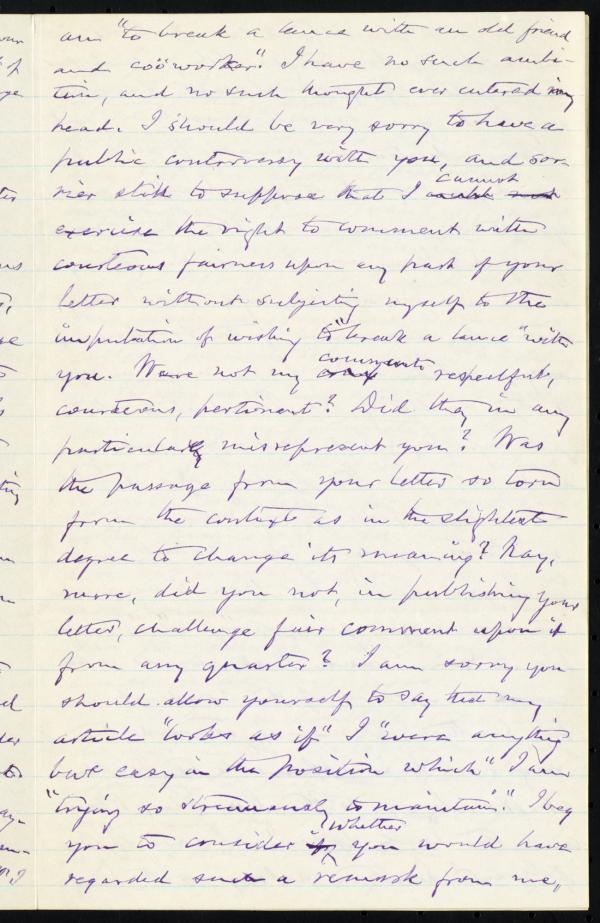 am "to break a lance with an old friend
and coöworker." I have no such ambi-
tion, and no such thought ever entered my
head. I should be very sorry to have a
public controversy with you, and sor-
rier still to suppose that I cannot
exercise the right to comment with
courteous fairness upon any part of your
letter without subjecting myself to the
imputation of wishing to "break a lance" with
you. Were not my comments respectful,
courteous, pertinent? Did they in any
particular misrepresent you? Was
the passage from your letter so torn
from the context as in the slightest
degree to change its meaning? Nay,
more, did you not, in publishing your
letter, challenge fair comment upon it
from any quarter? I am sorry you
should allow yourself to say that my
article "looks as if" I "were anything
but easy in the position which" I am
"trying so strenuously to maintain." I beg
you to consider whether you would have
regarded such a remark from me,